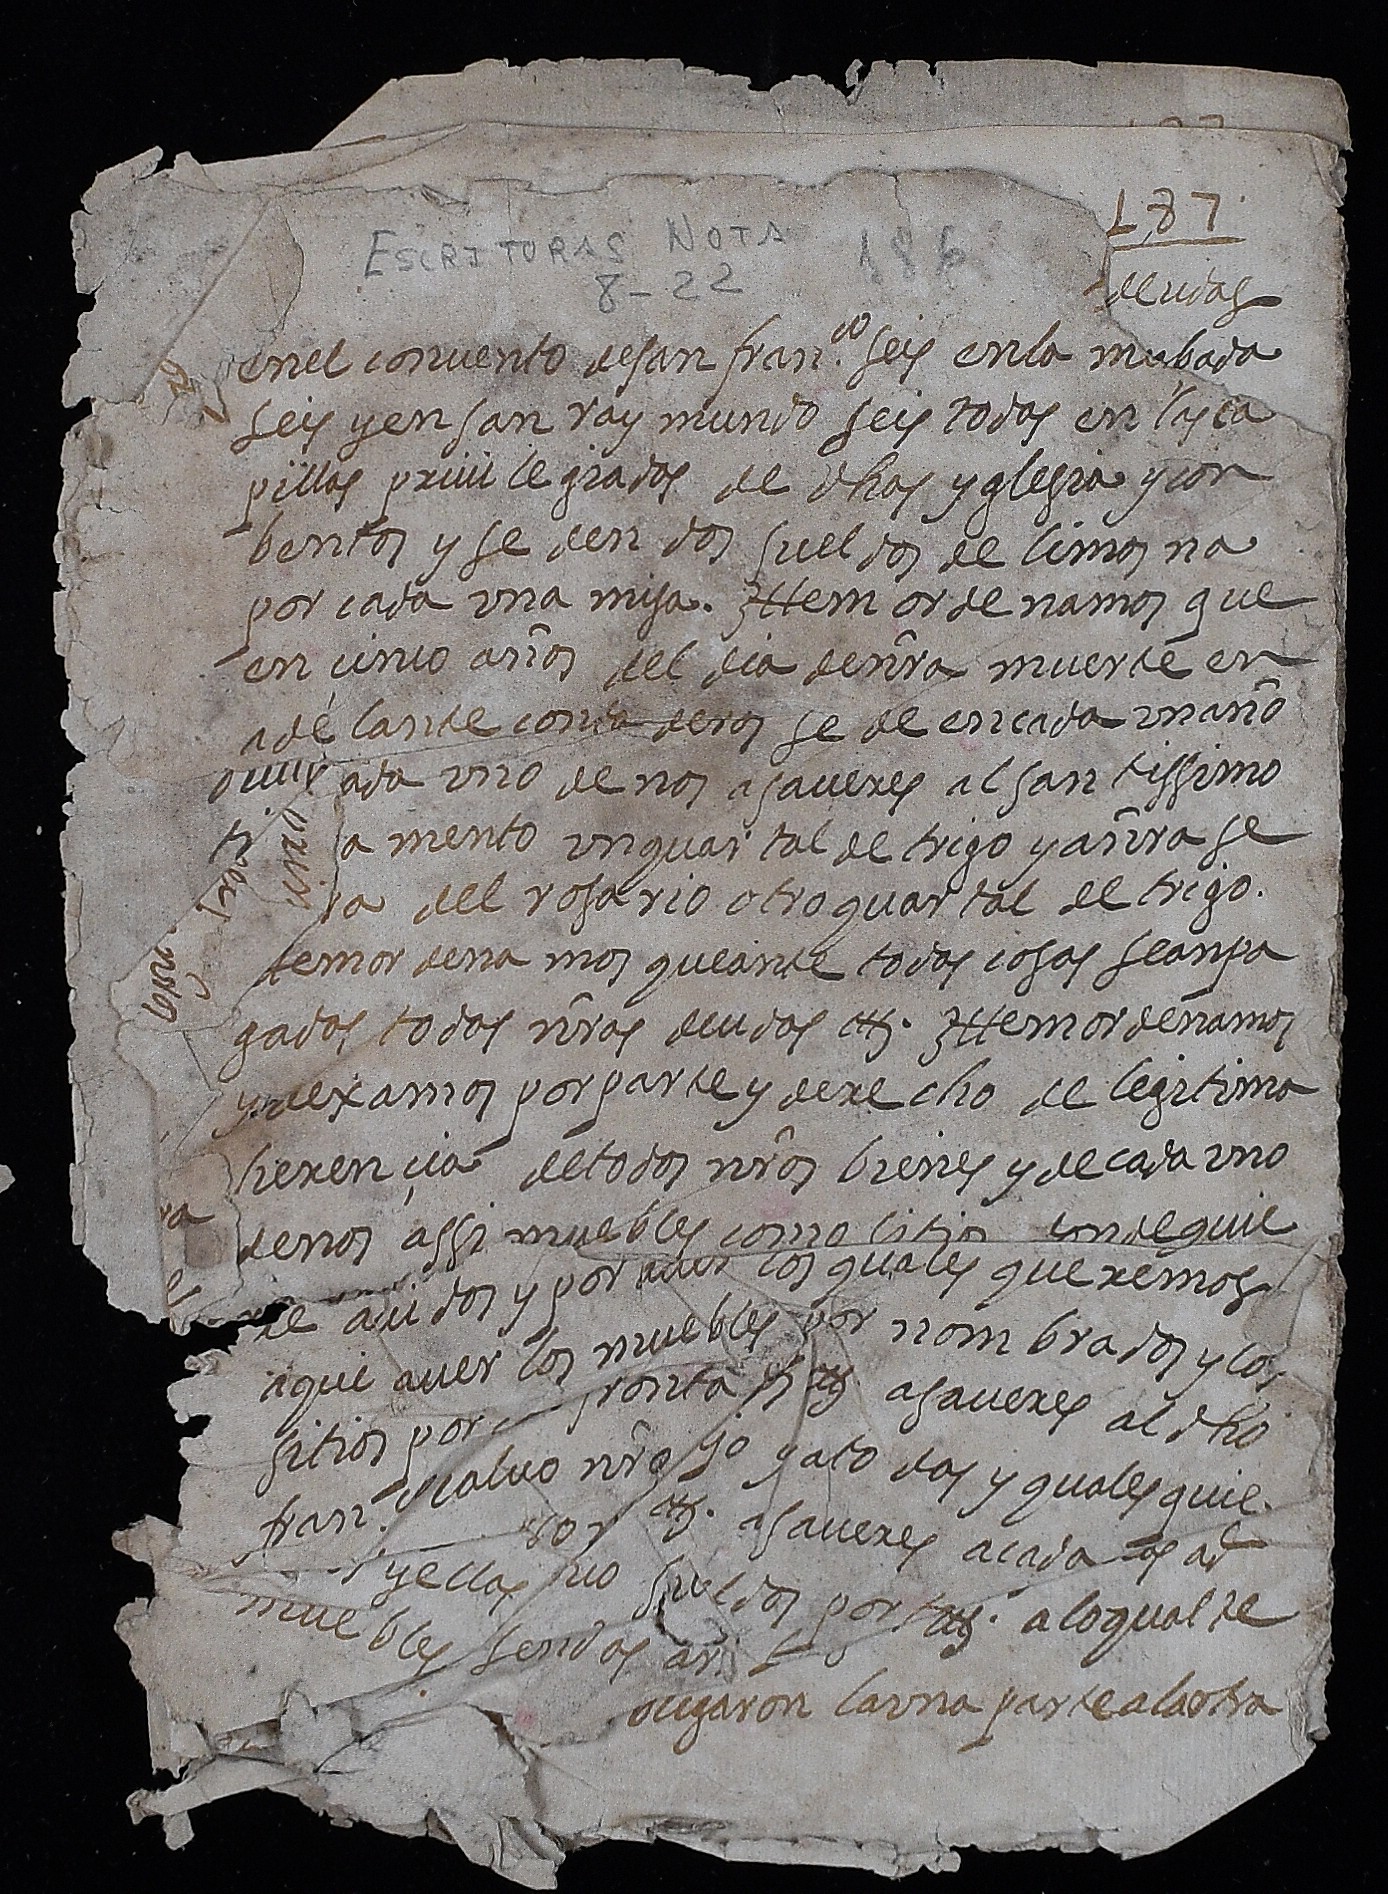 187
ESCRITURAS NOTA 186
8-22
deudas
en el conuento de san fran.co seis en la
seis y en san ray mundo seis todos en las ca
pillas priuilegiados de dhas yglesia y con
bentos y se den dos sueldos de limosna
por cada vna misa. Ittem ordenamos que
en cinco años del dia de nr̃a muerte en
adelante contaderos se de en cada vn año
cada vno de nos asaueres al santissimo
amento vn quartal de trigo y a nr̃a se
ra del rosario otro quartal de trigo.
tem ordenamos que ante todas cosas sean pa
gados todas nr̃as deudas etc. Ittem ordenamos
y dexamos por parte y derecho de legitima
herencia de todos nr̃os bienes y de cada vno
de nos assi muebles como sitios donde quie
re auidos y por auer los quales queremos
aqui auer los muebles por nombrados y los
sitios por confrontados etc asaueres al dho
fran.co caluo nr̃o yjo y a todas y qualesquie
asaueres a cada
y ellas sueldos por etc. a lo qual te
muebles sendos
ougaron la vna parte a la otra